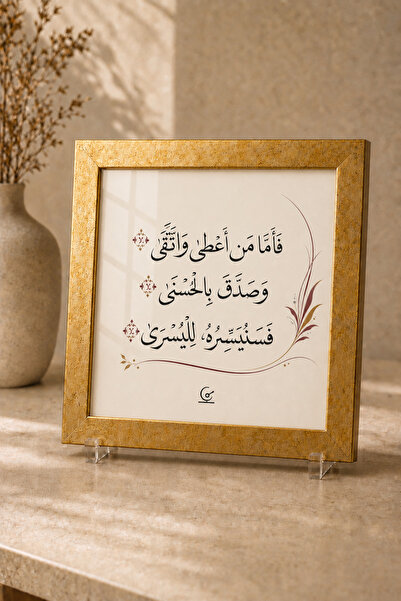 فَأَمَّا مَن أَعْطَىٰ وَاتَّقَىٰ
وَصَدَّقَ بِالْحُسْنَىٰ
فَسَنُيَسِّرُهُ لِلْيُسْرَىٰ